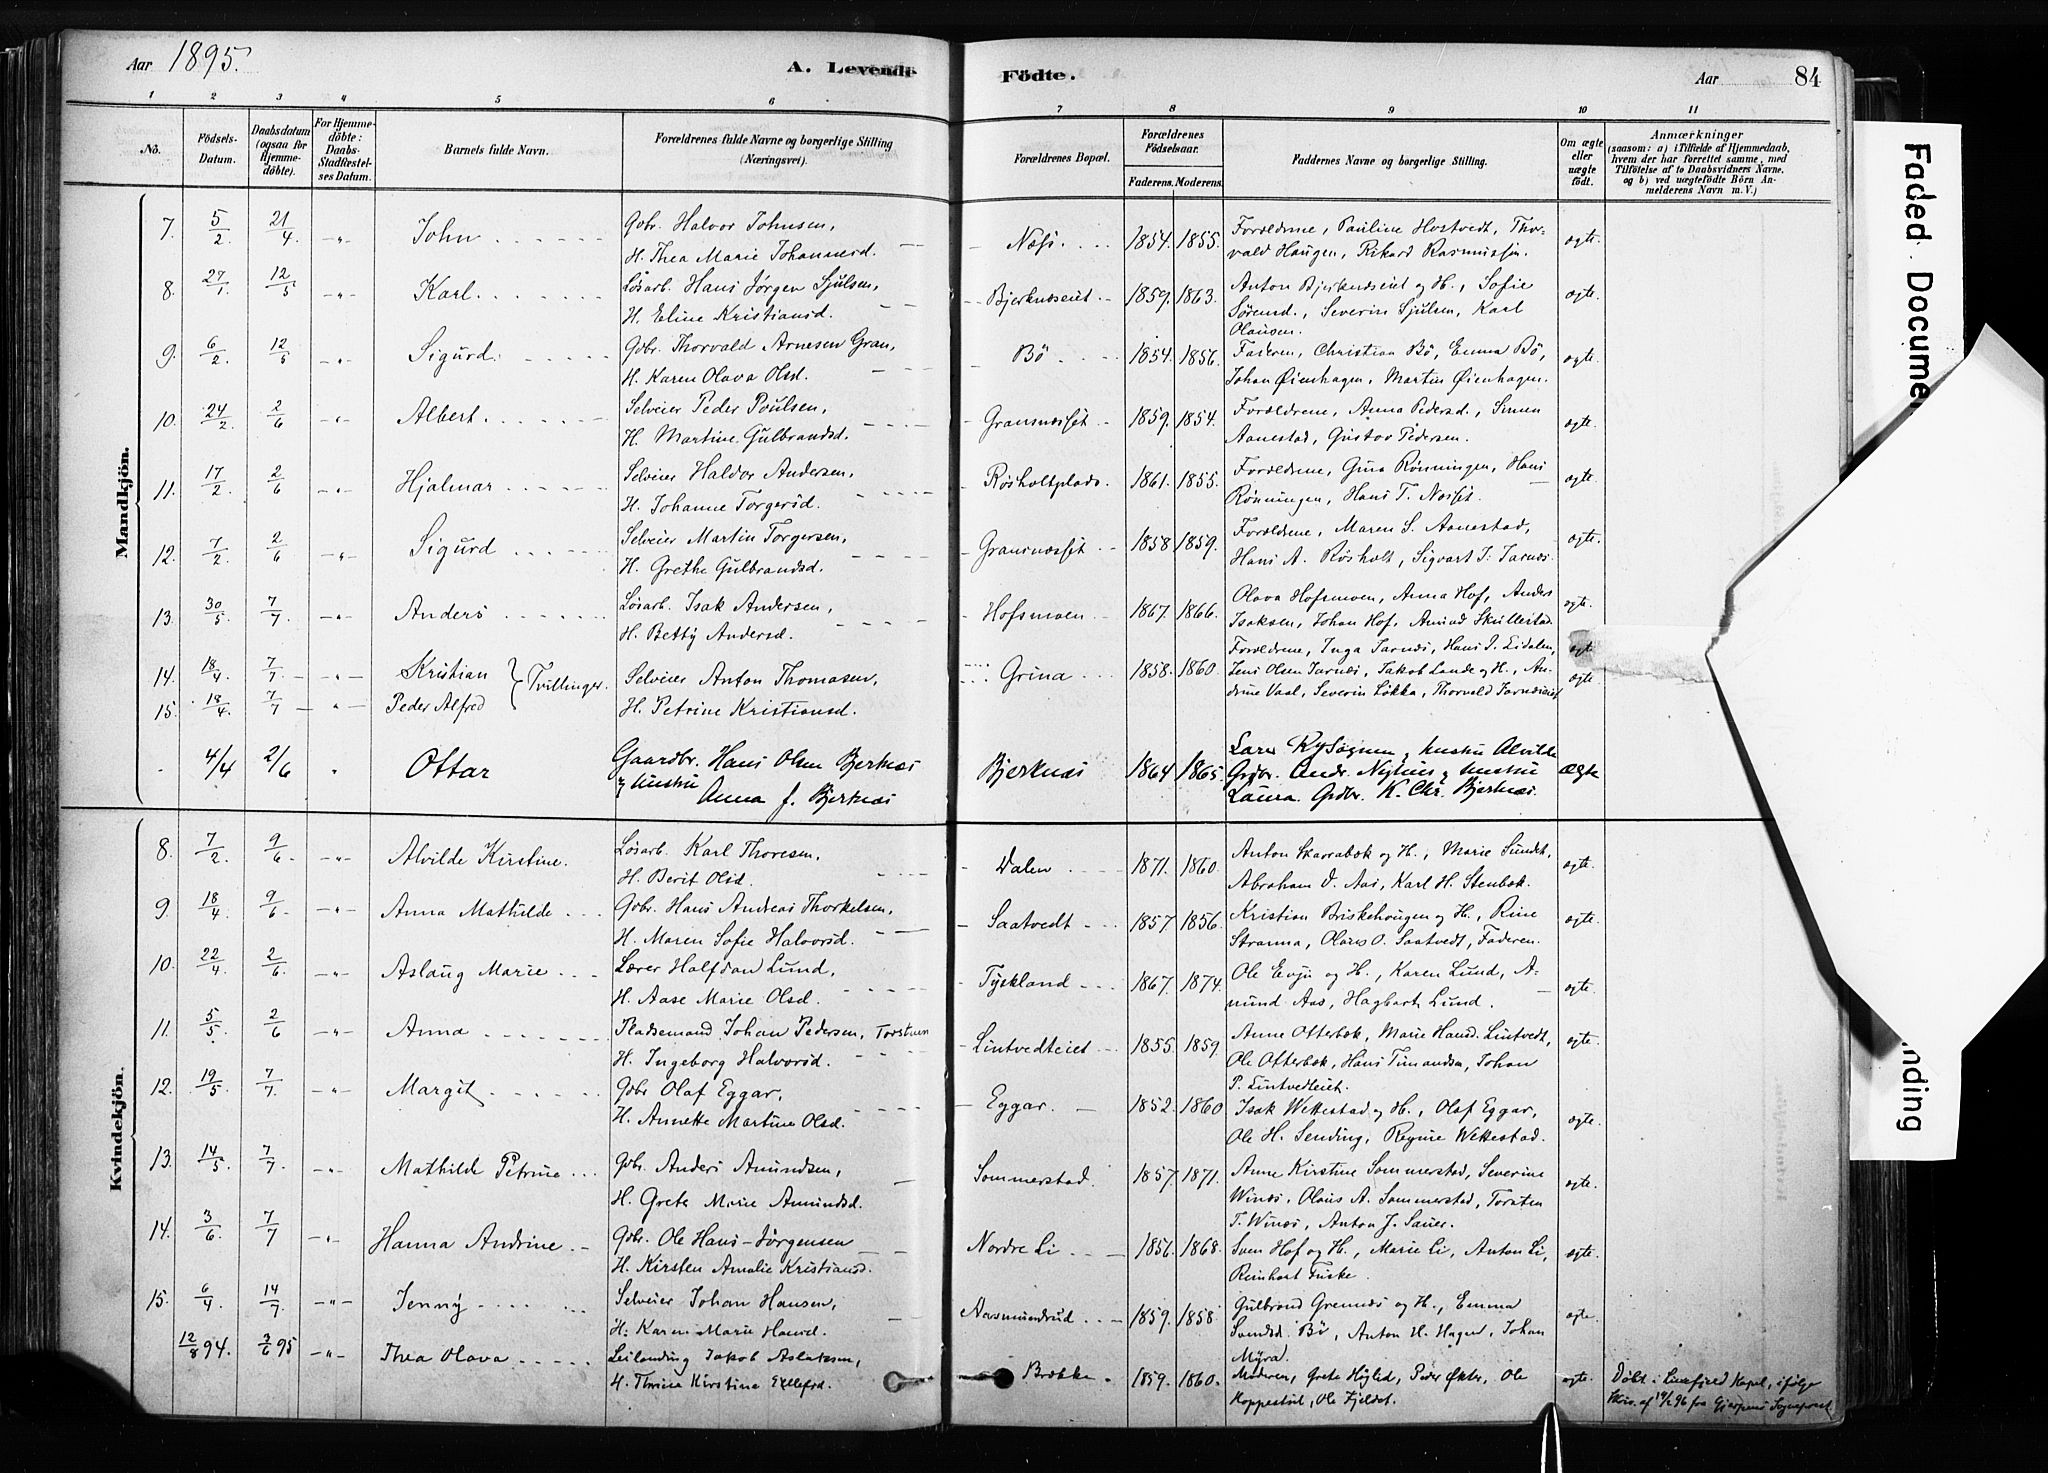 Aar 1895. A. Levende Födte. Aar 84
1 2 3 4 5 6 7 8 9 10 11
No. Födsels-Datum. Daabsdatum (ogsaa for Hjemmedöbte). For Hjemmedöbte: Daabs-Stadfæstelses Datum. Barnets fulde Navn. Forældrenes fulde Navne og borgerlige Stilling (Næringsvei). Forældrenes Bopæl. Forældrenes Födselsaar. Faderens. Moderens. Faddernes Navne og borgerlige Stilling. Om ægte eller uægte födt. Anmærkninger (saasom: a) i Tilfælde af Hjemmedaab, hvem der har forrettet samme, med Tilföielse af to Daabsvidners Navne, og b) ved uægtefödte Börn Anmelderens Navn m. V.)
Mandkjön.
7. 5/2 21/4 -"- John Gbr. Halvor Johnsen, Næss. 1854. 1855. Forældrene, Pauline Hostvedt, Thor- ægte.
H. Thea Marie Johannesd. vald Haugen, Rikard Rasmussen.
8. 27/1 12/5 -"- Karl. Løsarb. Hans Jørgen Sjulsen, Bjerknæseiet 1859. 1863. Anton Bjerknæseiet og H., Sofie ægte.
H. Eline Kristiansd. Sørensd., Severin Sjulsen, Karl
Olausen.
9. 6/2 12/5 " Sigurd. Gbr. Thorvald Arnesen Gran, Bö 1854. 1856. Faderen, Christian Bö, Emma Bö, ægte.
H. Karen Olava Olsd. Johan Øienhagen, Martin Øienhagen.
10. 24/2 2/6 -"- Albert. Selveier Peder Poulsen, Gransnæsset 1859. 1854. Forældrene, Anna Pedersd., Simen ægte.
H. Martine Gulbrandsd. Aanestad, Gustav Pedersen.
11. 17/2 2/6 -"- Hjalmar Selveier Haldor Andersen, Røsholtplads. 1861. 1855. Forældrene, Gina Rønningen, Hans ægte.
H. Johanne Torgersd. Rønningen, Hans T. Næsset.
12. 7/2 2/6 " Sigurd Selveier Martin Torgersen, Gransnæsset 1858 1859. Forældrene, Maren S. Aanestad, ægte.
H. Grethe Gulbrandsd. Hans A. Røsholt, Sigvart J. Jarnæs.
13. 30/5 7/7 -"- Anders Løsarb. Isak Andersen, Hofsmoen 1867. 1866. Olava Hofsmoen, Anna Hof, Anders ægte.
H. Betty Andersd. Isaksen, Johan Hof, Amund Skullestad
14. 18/4 7/7 -"- Kristian } Tvillinger. Selveier Anton Thomasen, Grina 1858. 1860. Forældrene, Inga Jarnæs, Hans J. Lidalen, ægte
Jens Olsen Jarnæs, Jakob Lande og H., An- ægte.
15. 18/4 7/7 -"- Peder Alfred H. Petrine Kristiansd. drine Vaal, Severin Løkka, Thorvald Jarnæseiet
4/4 2/6 " Ottar Gaardbr. Hans Olsen Bjerknæs Bjerknæs 1864 1865. Lars og Hustru Alvilde ægte
og Hustru Grdbr. Andr. og Hustru
Anna J. Bjerknæs Laura. Grdbr. K. Chr. Bjerknæs.
Kvindekjön.
8. 7/2 9/6 -"- Alvilde Kirstine. Løsarb. Karl Thoresen, Dalen 1871. 1860. Anton Skarrabæk og H., Marie Sundet, ægte.
H. Berit Olsd. Abraham D. Aas, Karl H. Stenbæk.
9. 18/4 9/6 -"- Anna Mathilde Gbr. Hans Andreas Thorkelsen, Saatvedt 1857 1856. Kristian Briskehougen og H., Rine ægte.
H. Maren Sofie Halvorsd. Stranna, Olaus O. Saatvedt, Faderen.
10. 22/4 2/6 -"- Aslaug Marie Lærer Halfdan Lund, Tyskland 1867. 1874. Ole Evju og H., Karen Lund, A- ægte.
H. Aase Marie Olsd. mund Aas, Hagbart Lund.
11. 5/5 2/6 -"- Anna Pladsemand Johan Pedersen, Lintvedteiet 1855. 1859. Anne Otterbæk, Marie Hansd. Lintvedt, ægte.
H. Ingeborg Halvorsd. Ole Otterbæk, Hans Timandsen, Johan
P. Lintvedteiet.
12. 19/5 7/7 " Margit Gbr Olaf Eggar, Eggar. 1852. 1860 Isak Wettestad og H., Olaf Eggar, ægte.
H. Annette Martine Olsd. Ole H. Sending, Regine Wettestad.
13. 14/5 7/7 " Mathilde Petrine Gbr. Anders Amundsen, Sommerstad. 1857. 1871. Anne Kirstine Sommerstad, Severine ægte.
H. Grete Marie Amundsd. Winæs, Olaus A. Sommerstad, Torsten
T. Winæs, Anton J. Sauer.
14. 3/6 7/7 -"- Hanna Andrine Gbr. Ole Hans-Jørgensen Nordre Li 1856. 1868. Sven Hof og H., Marie Li, Anton Li, ægte.
H. Kirsten Amalie Kristiansd. Reinhart Fuske.
15. 6/4 14/7 -"- Jenny Selveier Johan Hansen, Aasmundrud 1859. 1858. Gulbrand Grennæs og H., Emma ægte.
H. Karen Marie Hansd. Svendsd. Bö, Anton H. Hagen, Johan
Myra.
12/8 94. 3/6 95 -"- Thea Olava Leilending Jakob Aslaksen, Brække. 1859. 1860. Moderen, Grete Høgled, Peder Økter, Ole ægte. Döbt i Luxefjeld Kapel, ifølge
H. Thrine Kirstine Ellefsd. Koppestul, Ole Fjeldet. Skriv. af 14/2 96 fra Gjerpens Sognepræst.
Faded Docume
nding